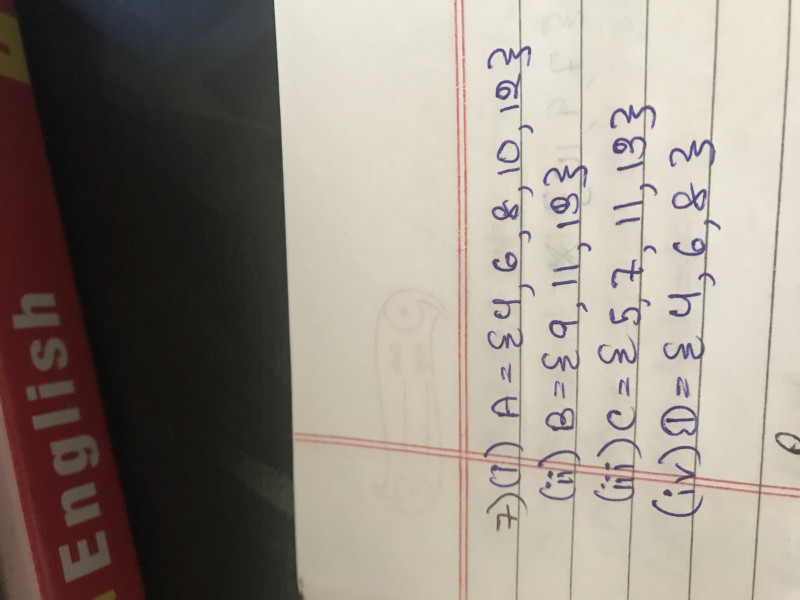 English
7)(i) A = {4, 6, 8, 10, 12}
(ii) B = {9, 11, 13}
(iii) C = {5, 7, 11, 13}
(iv) D = {4, 6, 8}